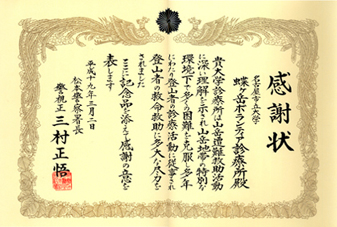 感謝状
名古屋市立大学
蝶ヶ岳ボランティア診療所殿
貴大学診療所は山岳遭難救助活動
に深い理解を示され山岳地帯の特別な
環境下で多くの困難を克服し多年
にわたり登山者の診療活動に従事され
登山者の救命救助に多大な尽力を
されました
ここに記念品を添えて感謝の意を
表します
平成十九年三月二日
松本警察署長
警視正 三村正悟